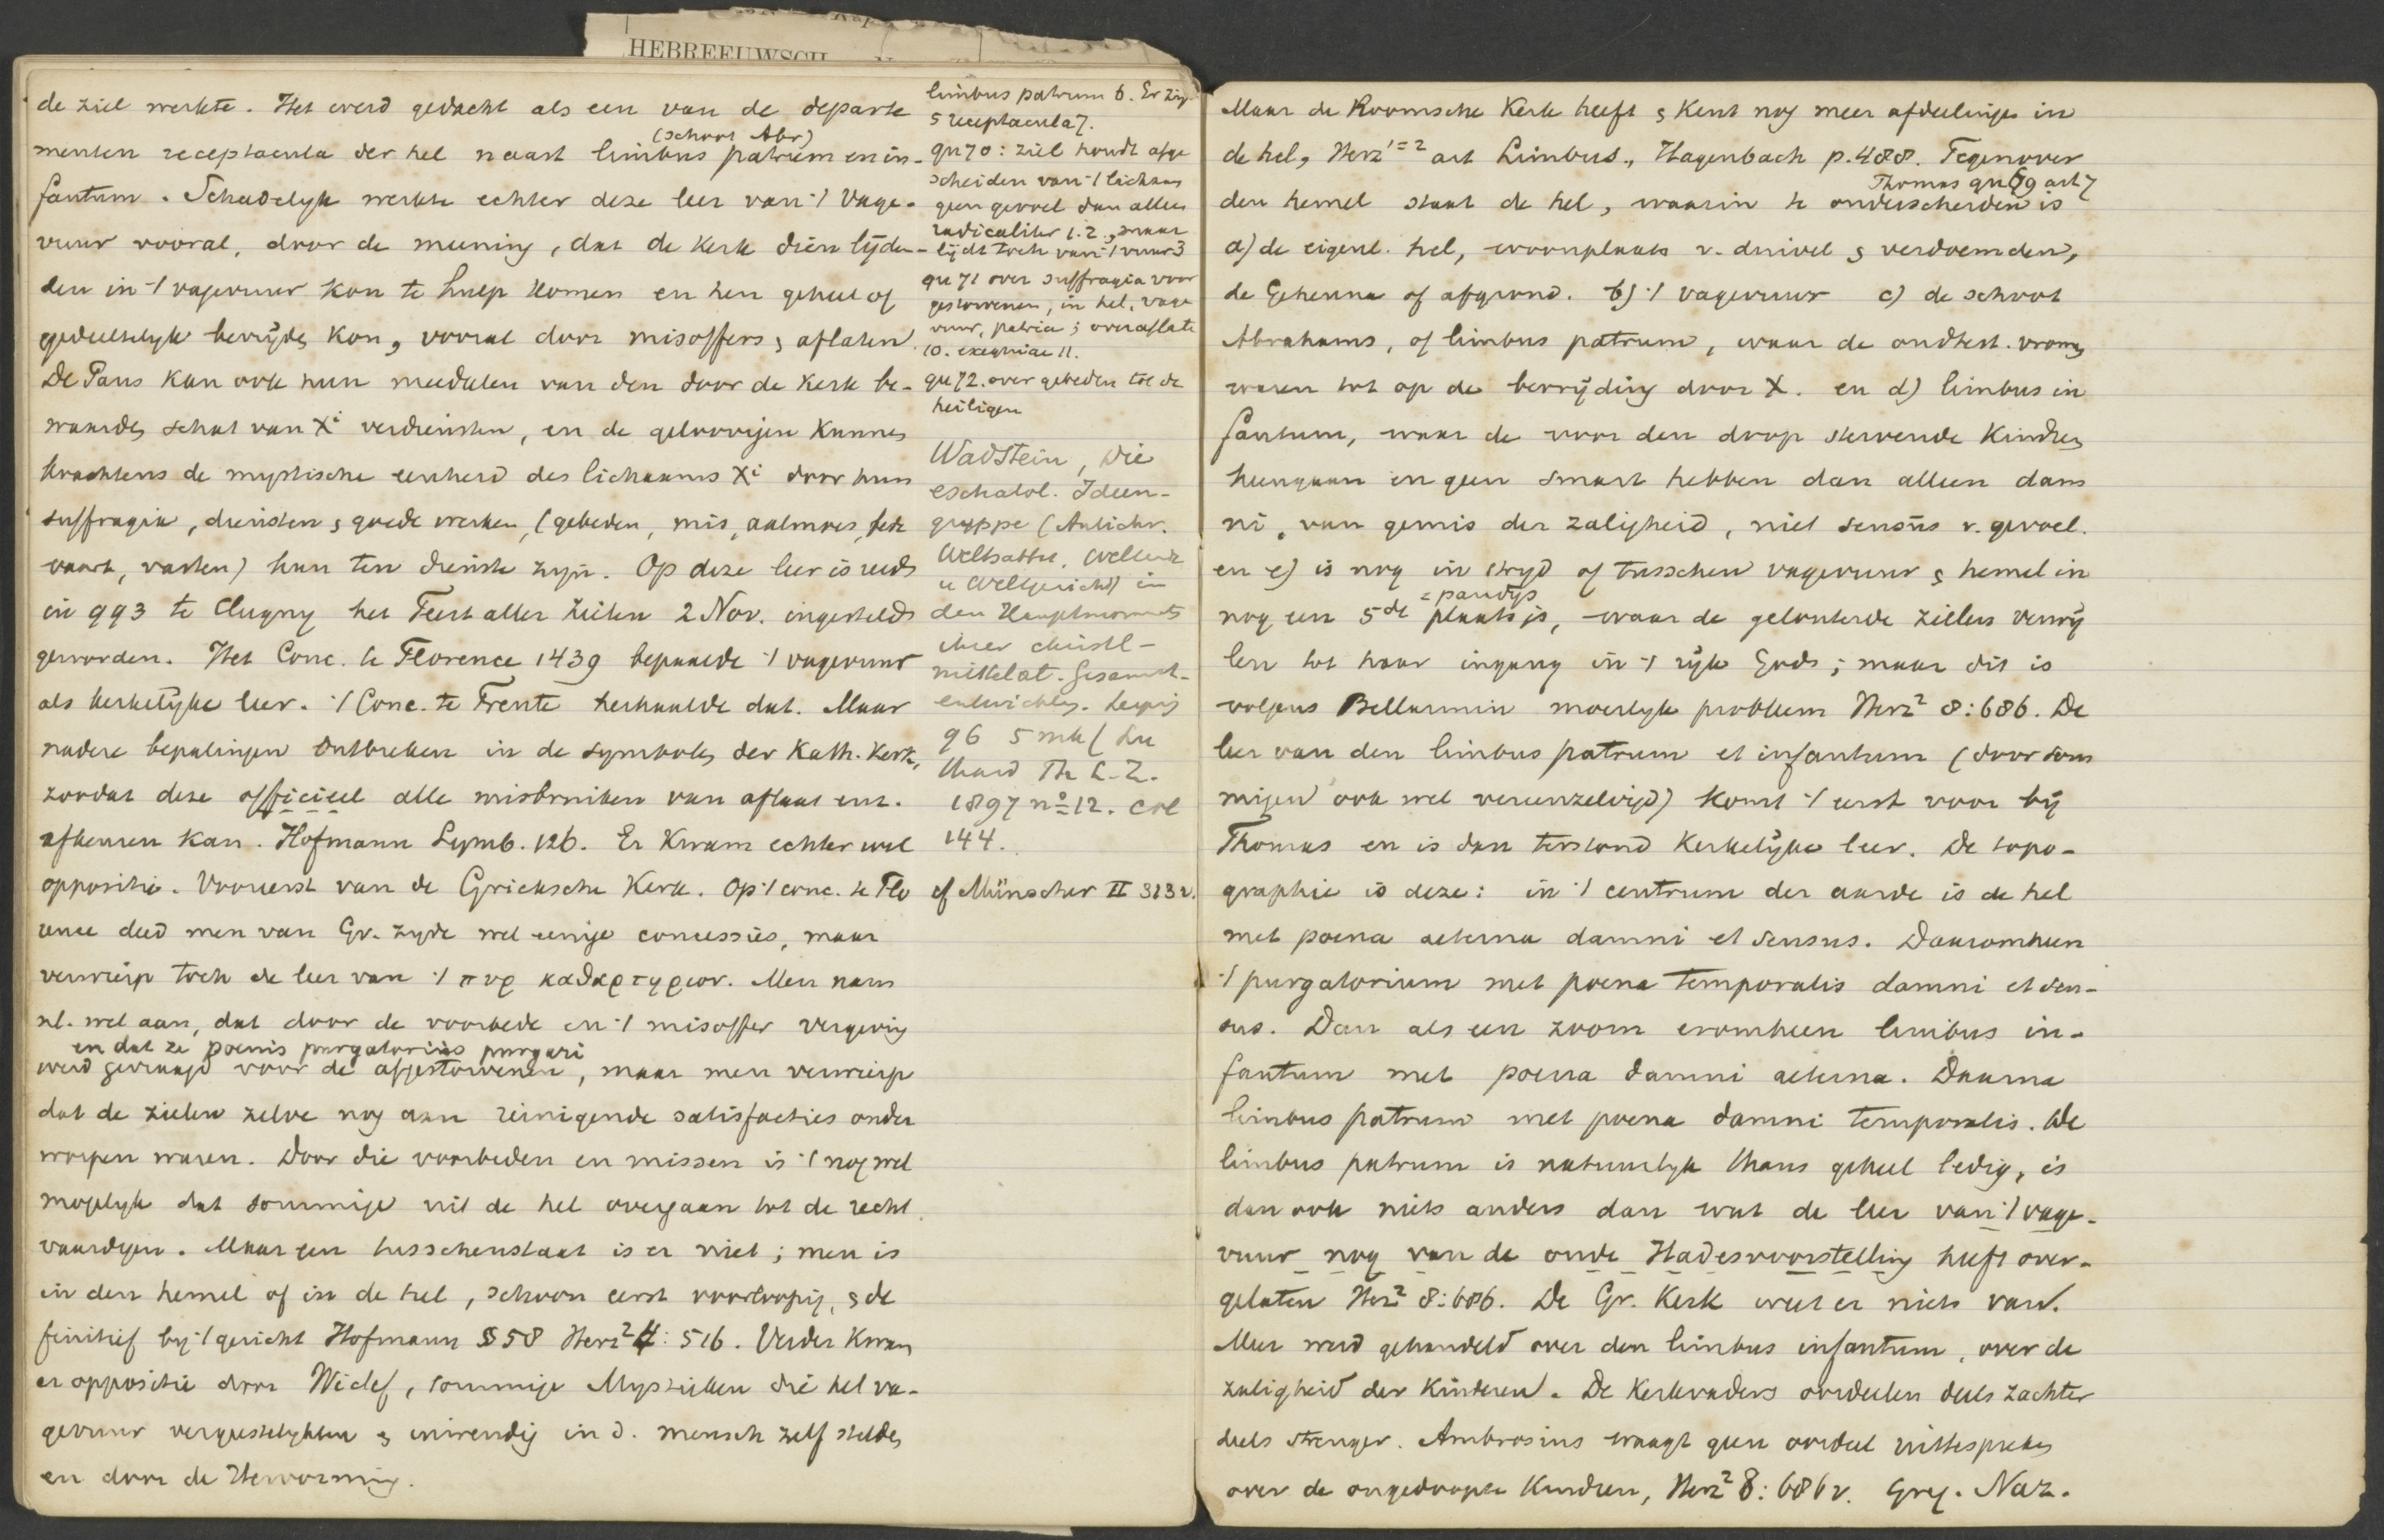 HEBREEUWSCH
de ziel werkte. Het werd gedacht als een van de departe
(schoot Abr)
menten receptacula der hel naast limbus patrum en in-
fantum. Schadelyk werkte echter deze leer van 't vage-
vuur vooral, door de meening, dat de Kerk dien lijden-
den in 't vagevuur kon te hulp komen en hen geheel of
gedeeltelyk bevrijden kon, vooral door misoffers & aflaten.
De Paus kan ook hun meedeelen van den door de Kerk be-
waarden schat van Xi verdiensten, en de geloovigen kunnen
krachtens de mystische eenheid des lichaams Xi door hun
suffragia, diensten & goede werken, (gebeden, mis, aalmoes, bede
vaart, vasten) hun ten dienste zyn. Op deze leer is reeds
in 993 te Clugny het Feest aller Zielen 2 Nov. ingesteld
geworden. Het Conc. te Florence 1439 bepaalde 't vagevuur
als kerkelijke leer. 't Conc. te Trente herhaalde dat. Maar
nadere bepalingen ontbreken in de symbolen der Kath. Kerk,
zoodat deze officieel alle misbruiken van aflaat enz.
afkeuren kan. Hofmann Symb. 126. Er kwam echter wel
oppositie. Vooreerst van de Grieksche Kerk. Op 't conc. te Flo
rence deed men van Gr. zyde wel eenige concessies, maar
verwierp toch de leer van 't πυρ καθαρτηριον. Men nam
nl. wel aan, dat door de voorbede en 't misoffer vergeving
en dat ze poenis purgatoriis purgari
werd gevraagd voor de afgestorvenen, maar men verwierp
dat de zielen zelve nog aan reinigende satisfacties onder
worpen waren. Door die voorbeden en missen is 't nog wel
mogelyk dat sommige uit de hel overgaan tot de recht
vaardigen. Maar een tusschenstaat is er niet; men is
in den hemel of in de hel, schoon eerst voorloopig, & de
finitief by 't gericht Hofmann § 58 Herz² 4: 516. Verder kwam
er oppositie door Wiclef, sommige Mystieken die het va-
gevuur vergeestelykten & inwendig in d. mensch zelf stelden
en door de Hervorming.
limbus patrum 6. Er zyn
5 receptacula 7.
qu 70: ziel houdt afge
scheiden van 't lichaam
geen gevoel dan alleen
radicaliter 1.2., maar
lijdt toch van 't vuur 3
qu 71 over suffragia voor
gestorvenen, in hel, vage
vuur, patria; over aflaten
10. exequiae 11.
qu 72. over gebeden tot de
heiligen
Wadstein, Die
eschatol. Ideen-
gruppe (Antichr.
Weltsabbat, Weltende
u Weltgericht) in
den Hauptmomenten
ihrer christl-
mittelalt. Gesammt-
entwicklg. Leipzig
96 5 mk (
Th L.Z.
1897 no 12. col
144.
cf Münscher II 313 v.
Maar de Roomsche Kerk heeft & kent nog meer afdeelingen in
de hel, Herz¹⁼² art Limbus., Hagenbach p. 488. Tegenover
Thomas qu 69 art 7
den hemel staat de hel, waarin te onderscheiden is
a) de eigenl. hel, woonplaats v. duivel & verdoemden,
de Gehenna of afgrond. b) 't vagevuur c) de schoot
Abrahams, of limbus patrum, waar de oudtest. vromen
waren tot op de bevrijding door X. en d) limbus in
fantum, waar de voor den doop stervende kinderen
heengaan en geen smart hebben dan alleen dam
ni, van gemis der zaligheid, niet sensus v. gevoel.
en e) is nog in stryd of tusschen vagevuur & hemel in
= paradys
nog een 5de plaats is, waar de gelouterde zielen verwij
len tot haar ingang in 't rijk Gods; maar dit is
volgens Bellarmin moeilyk probleem Herz² 8:686. De
leer van den limbus patrum et infantum (door som
migen ook wel vereenzelvigd) komt 't eerst voor bij
Thomas en is dan terstond kerkelijke leer. De topo-
graphie is deze: in 't centrum der aarde is de hel
met poena aeterna damni et sensus. Daaromheen
't purgatorium met poena temporalis damni et sen-
sus. Dan als een zoom eromheen limbus in-
fantum met poena damni aeterna. Daarna
limbus patrum met poena damni temporalis. De
limbus patrum is natuurlyk thans geheel ledig, is
dan ook niets anders dan wat de leer van 't vage-
vuur nog van de oude Hadesvoorstelling heeft over-
gelaten Herz² 8:686. De Gr. Kerk weet er niets van.
Meer werd gehandeld over den limbus infantum, over de
zaligheid der kinderen. De Kerkvaders oordeelen deels zachter
deels strenger. Ambrosius waagt geen oordeel uittespreken
over de ongedoopte kinderen, Herz² 8:686 v. Greg. Naz.